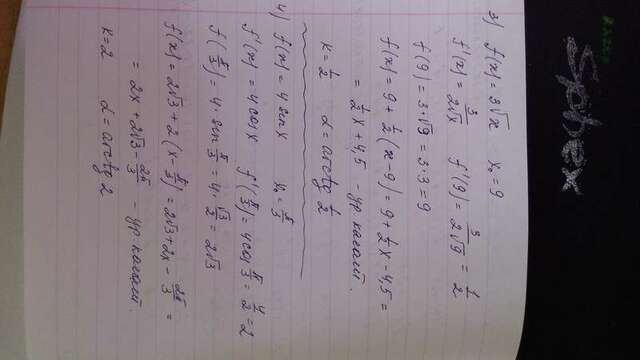 3) f(x) = 3√x x₀ = 9
f'(x) = 3/(2√x) f'(9) = 3/(2√9) = 1/2
f(9) = 3·√9 = 3·3 = 9
f(x) = 9 + 1/2 (x-9) = 9 + 1/2 x - 4,5 =
= 1/2 x + 4,5 - ур касат.
k = 1/2 α = arctg 1/2
4) f(x) = 4 sin x x₀ = π/3
f'(x) = 4 cos x f'(π/3) = 4 cos π/3 = 4/2 = 2
f(π/3) = 4 · sin π/3 = 4 · √3/2 = 2√3
f(x) = 2√3 + 2 (x - π/3) = 2√3 + 2x - 2π/3 =
= 2x + 2√3 - 2π/3 - ур касат.
k = 2 α = arctg 2
Sphex